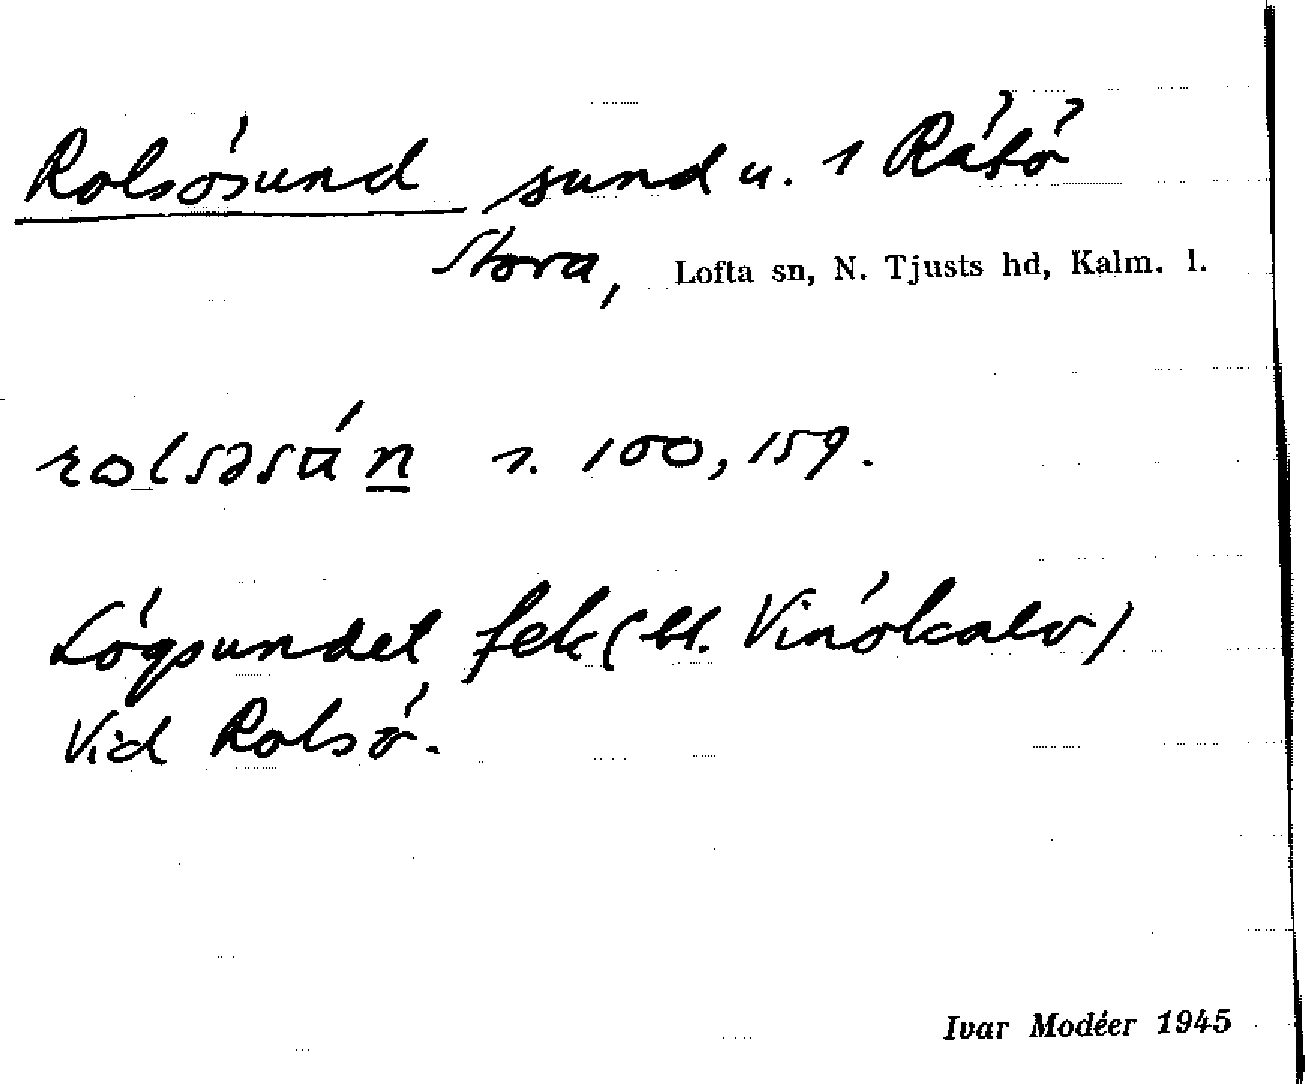 Rolsösund sund u. 1 Rätö
Stora, Lofta sn, N. Tjusts hd, Kalm. l.
rolsəsún r. 100, 159.
Lögsundet fek (bl. Vinökalv)
Vid Rolsö.
Ivar Modéer 1945